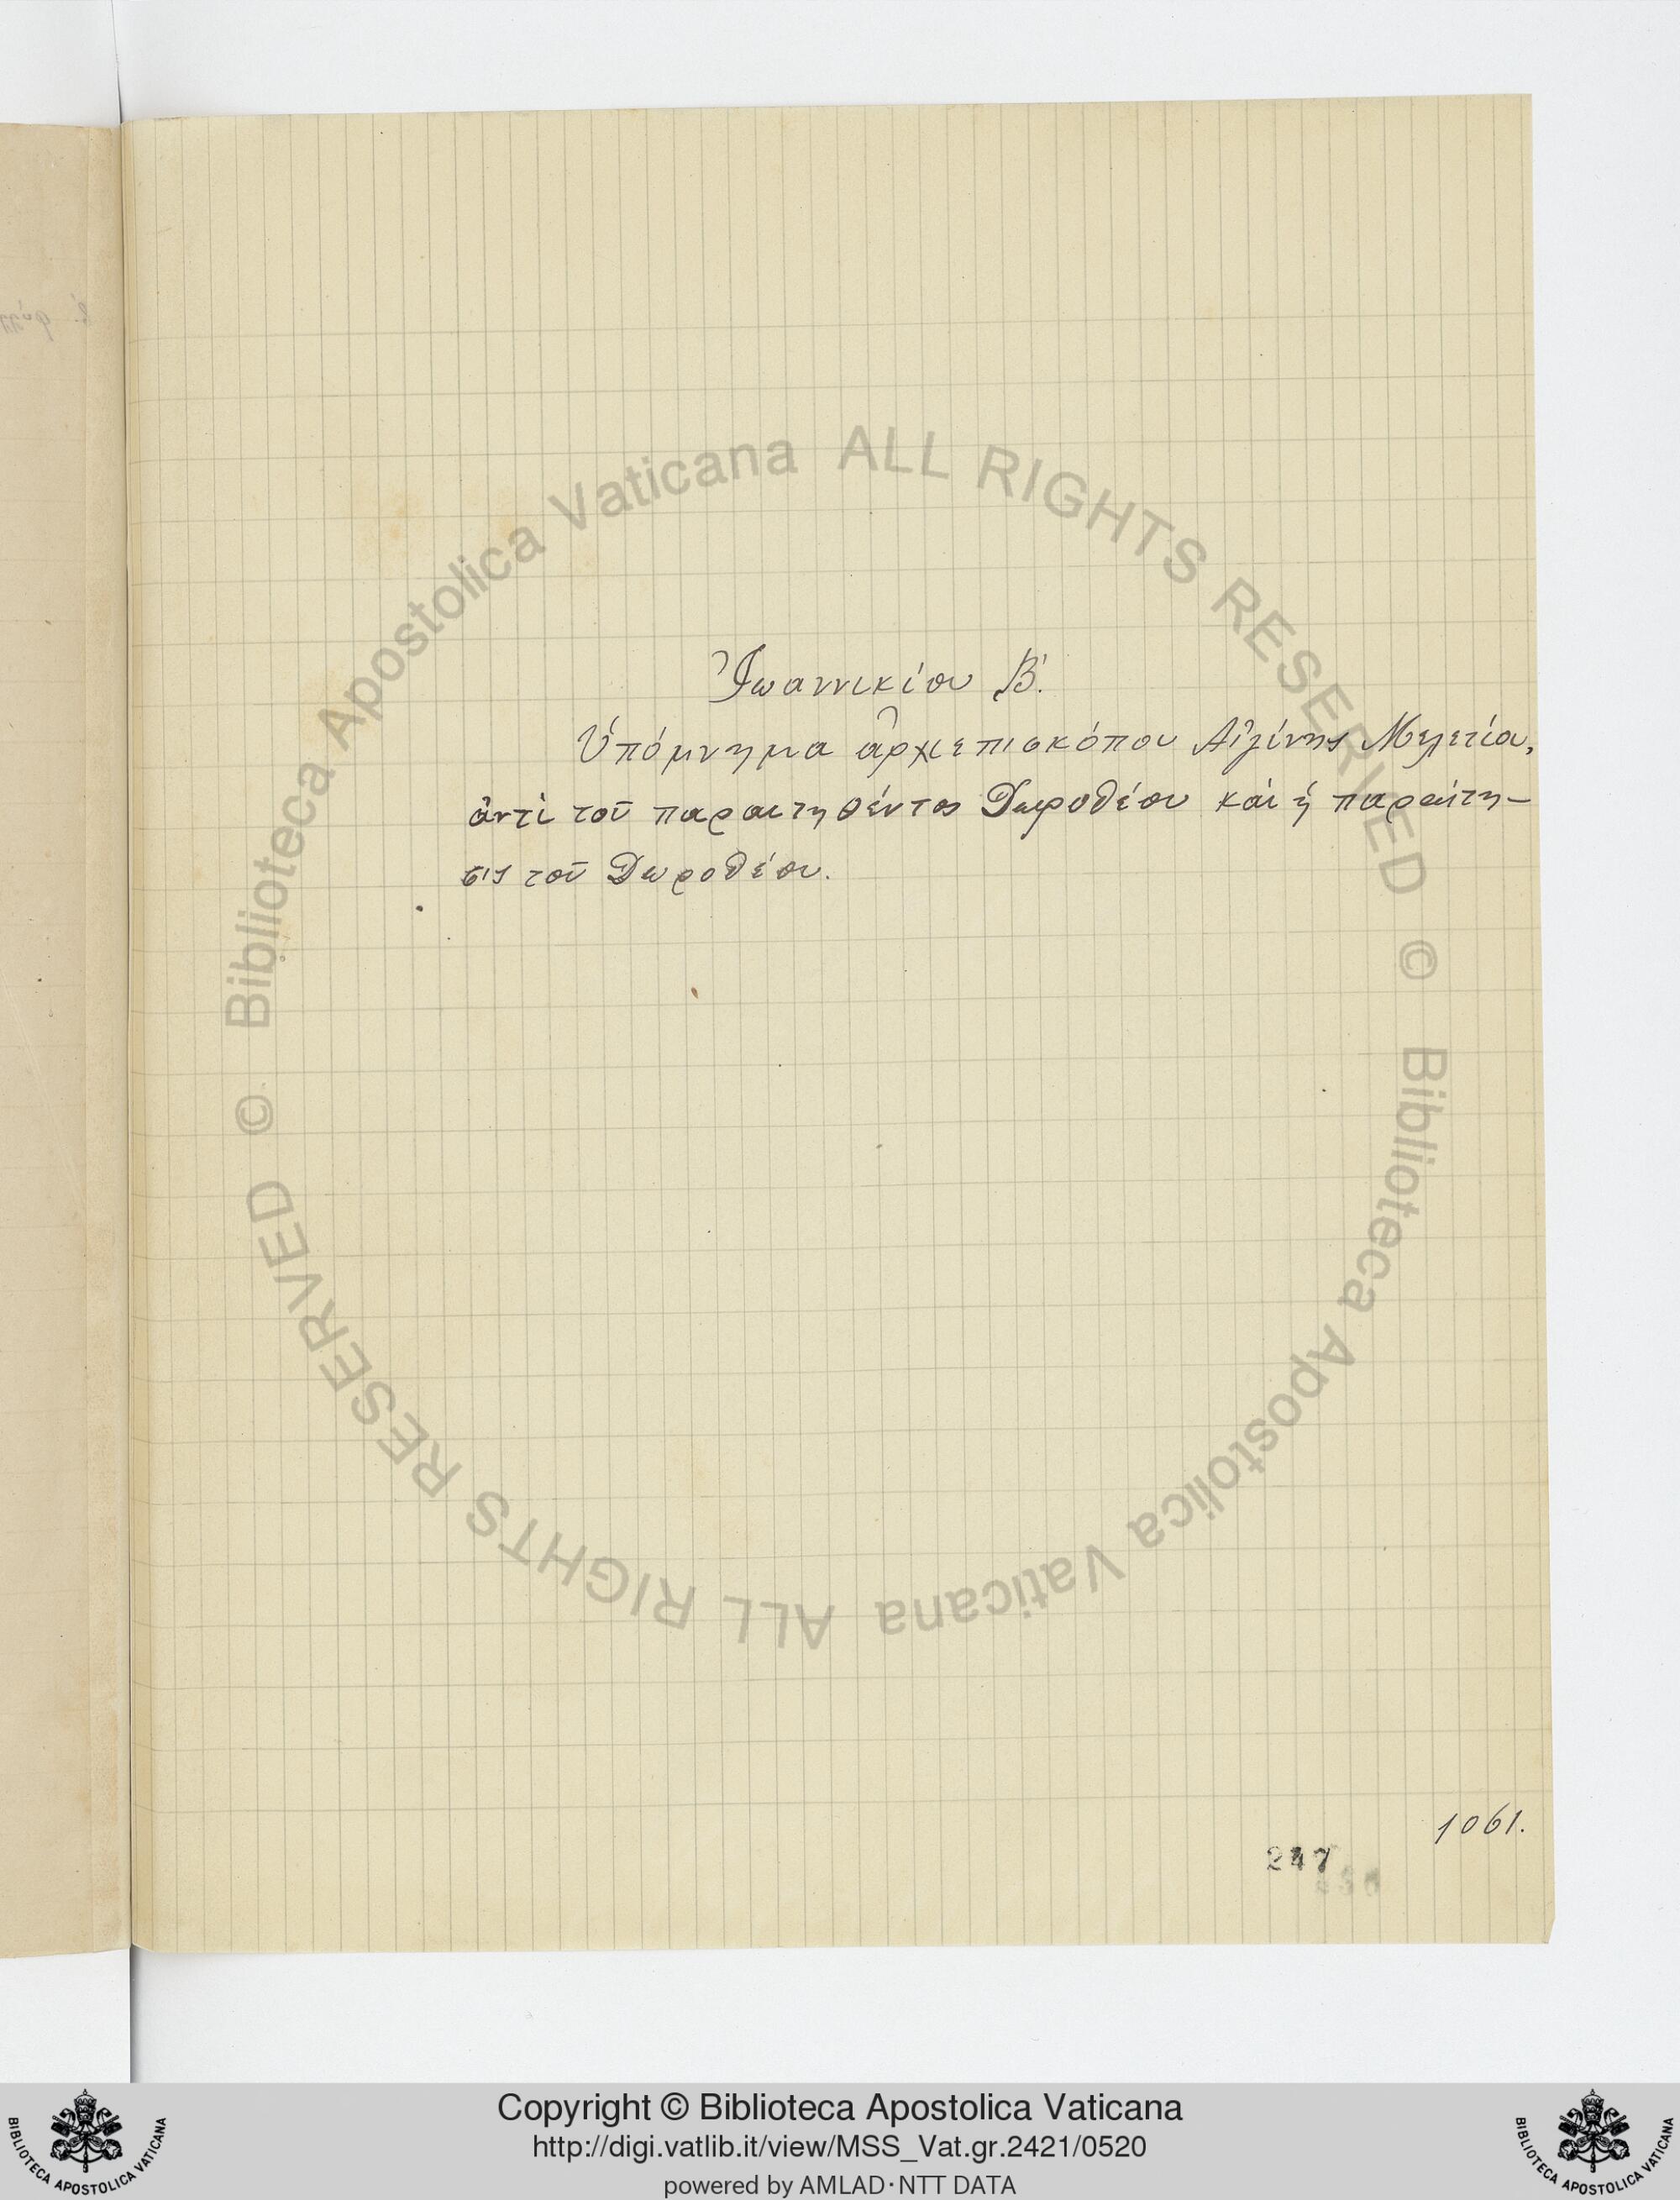 Ἰωαννικίου Β΄.
Ὑπόμνημα ἀρχιεπισκόπου Αἰγίνης Μελετίου,
ἀντὶ τοῦ παραιτηθέντος Δωροθέου καὶ ἡ παραίτη-
σις τοῦ Δωροθέου.
1061.
247
© Biblioteca Apostolica Vaticana ALL RIGHTS RESERVED
© Biblioteca Apostolica Vaticana ALL RIGHTS RESERVED
Copyright © Biblioteca Apostolica Vaticana
http://digi.vatlib.it/view/MSS_Vat.gr.2421/0520
powered by AMLAD·NTT DATA
BIBLIOTECA APOSTOLICA VATICANA
BIBLIOTECA APOSTOLICA VATICANA